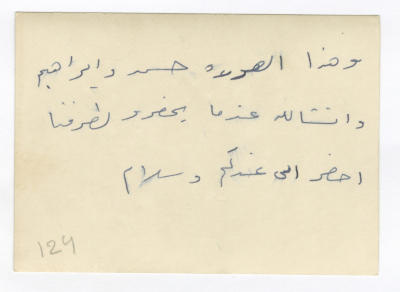 وهذا الصوره حسن وابراهيم
وانشالله عندما يحضرو لطرفنا
احضر الى عندكم وسلام
124